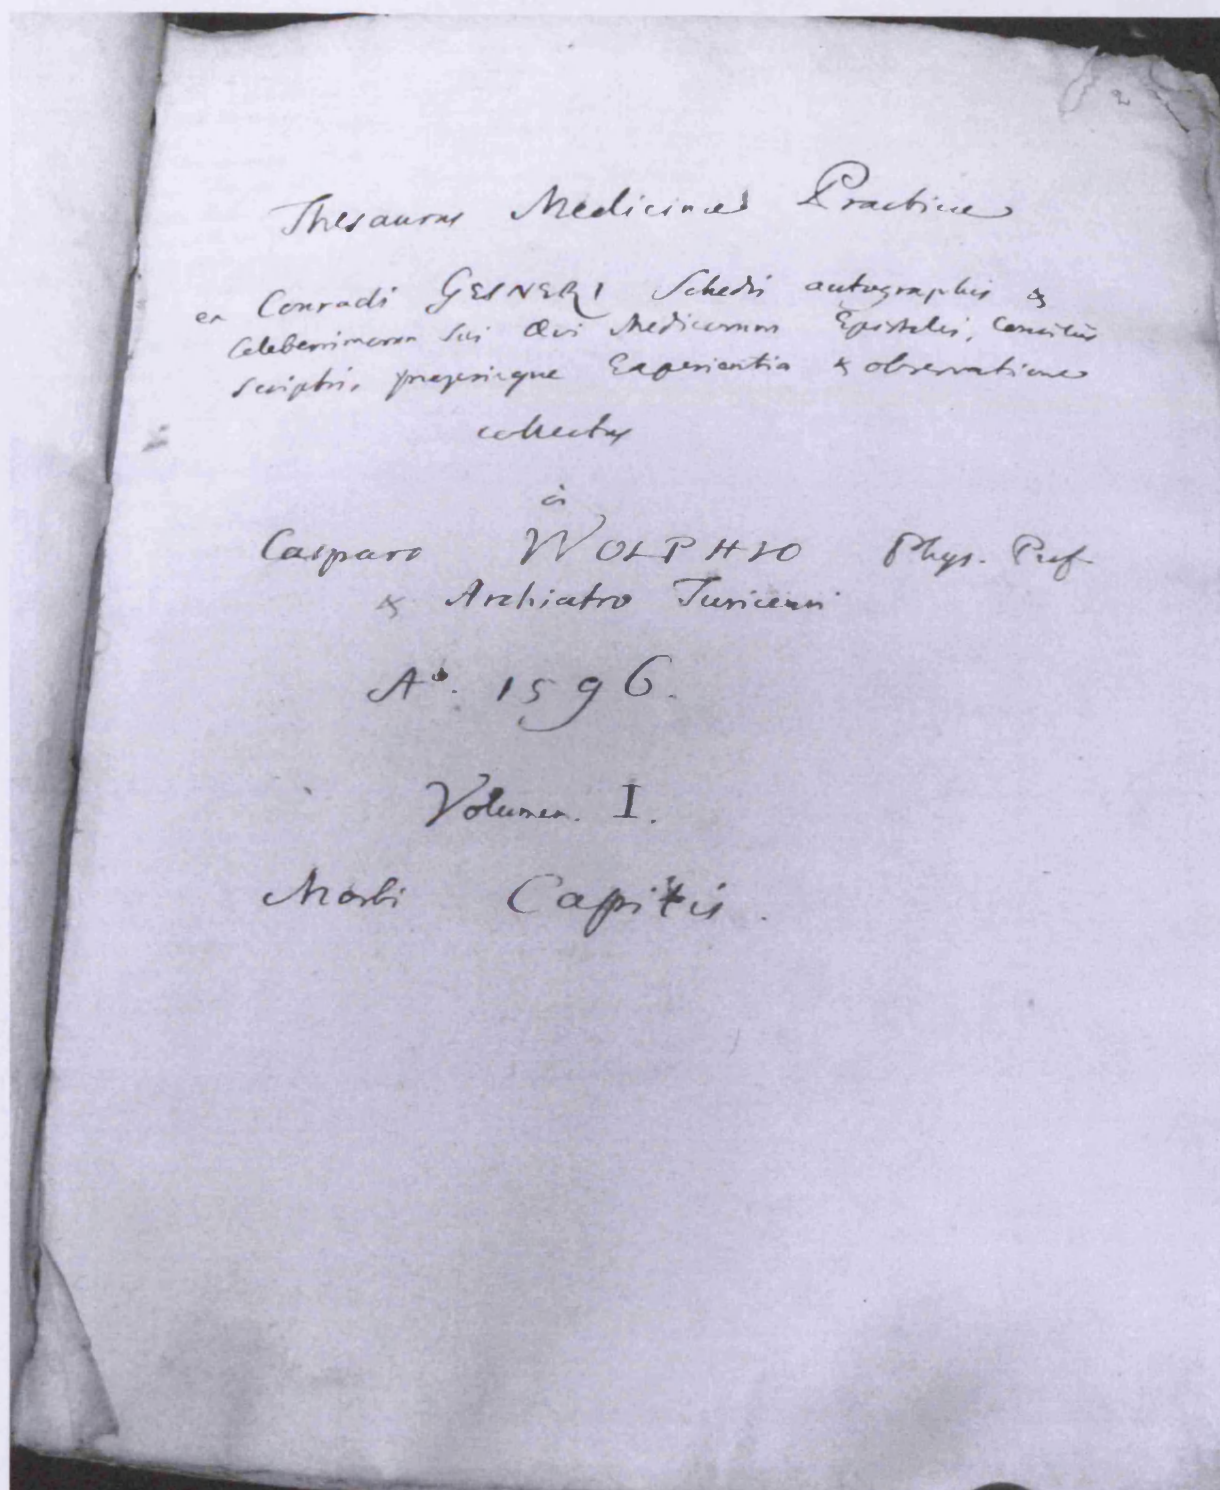 2
Thesaurus Medicinae Practicae
ex Conradi GESNERI Schedis autographis &
Celeberrimorum Sui Aevi Medicorum Epistolis, Consiliis
scriptis, propriaque Experientia & observatione
collectus
à
Casparo WOLPHIO Phys. Prof
& Archiatro Turicensi
Aº. 1596.
Volumen. I.
Morbi Capitis.